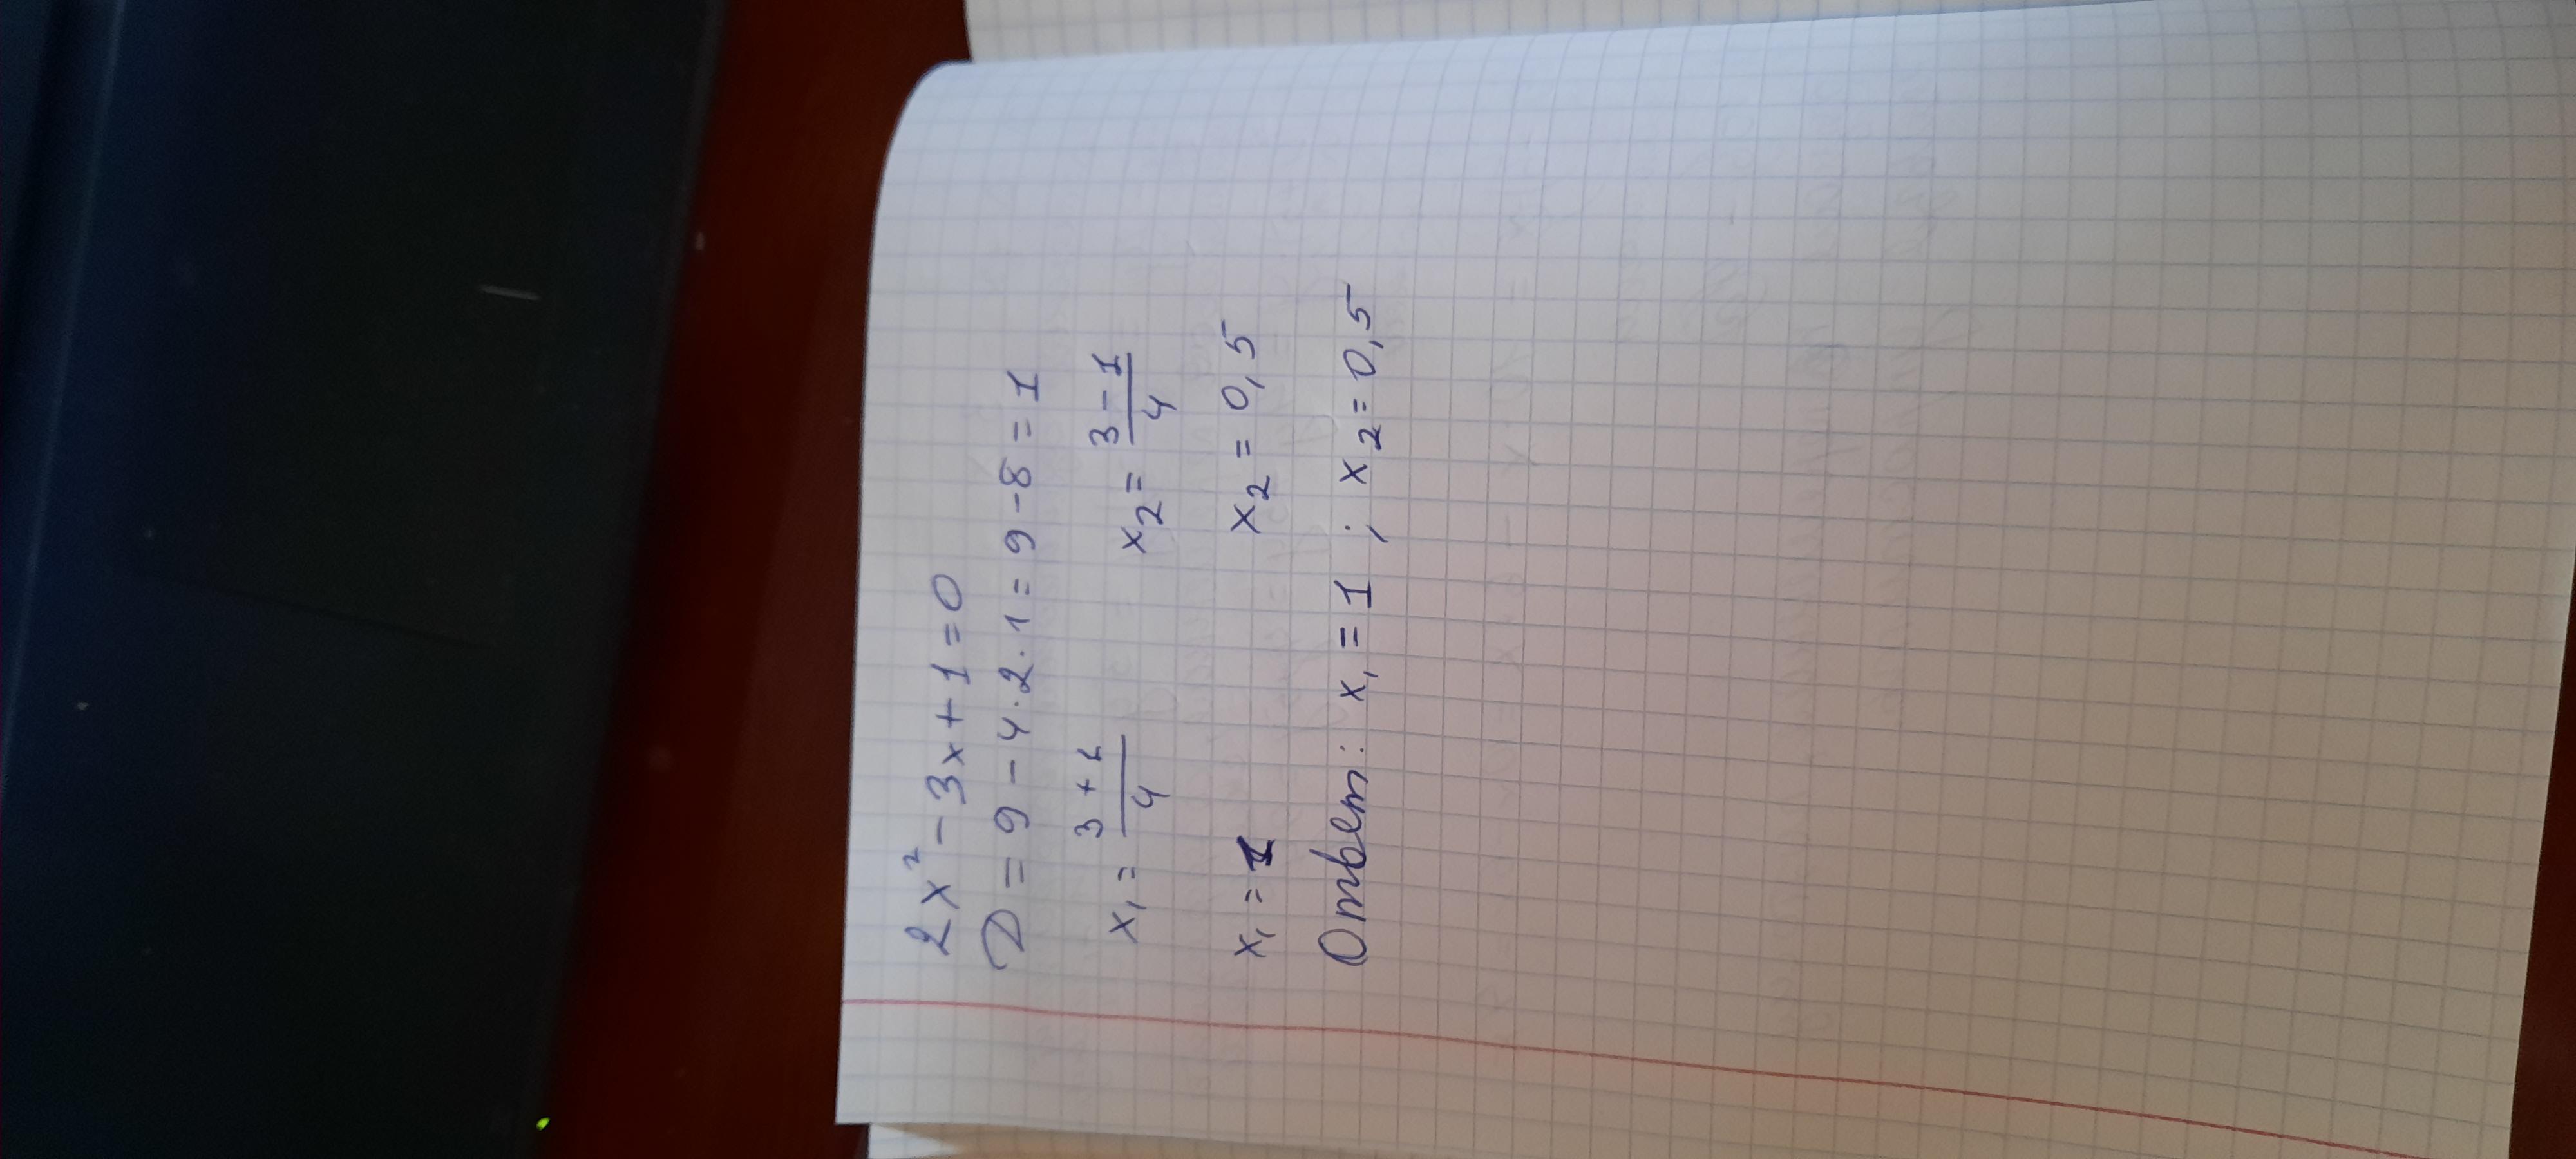 2x² - 3x + 1 = 0
D = 9 - 4 · 2 · 1 = 9 - 8 = 1
x₁ = (3 + 1)/4 x₂ = (3 - 1)/4
x₁ = 1 x₂ = 0,5
Ответ: x₁ = 1 ; x₂ = 0,5